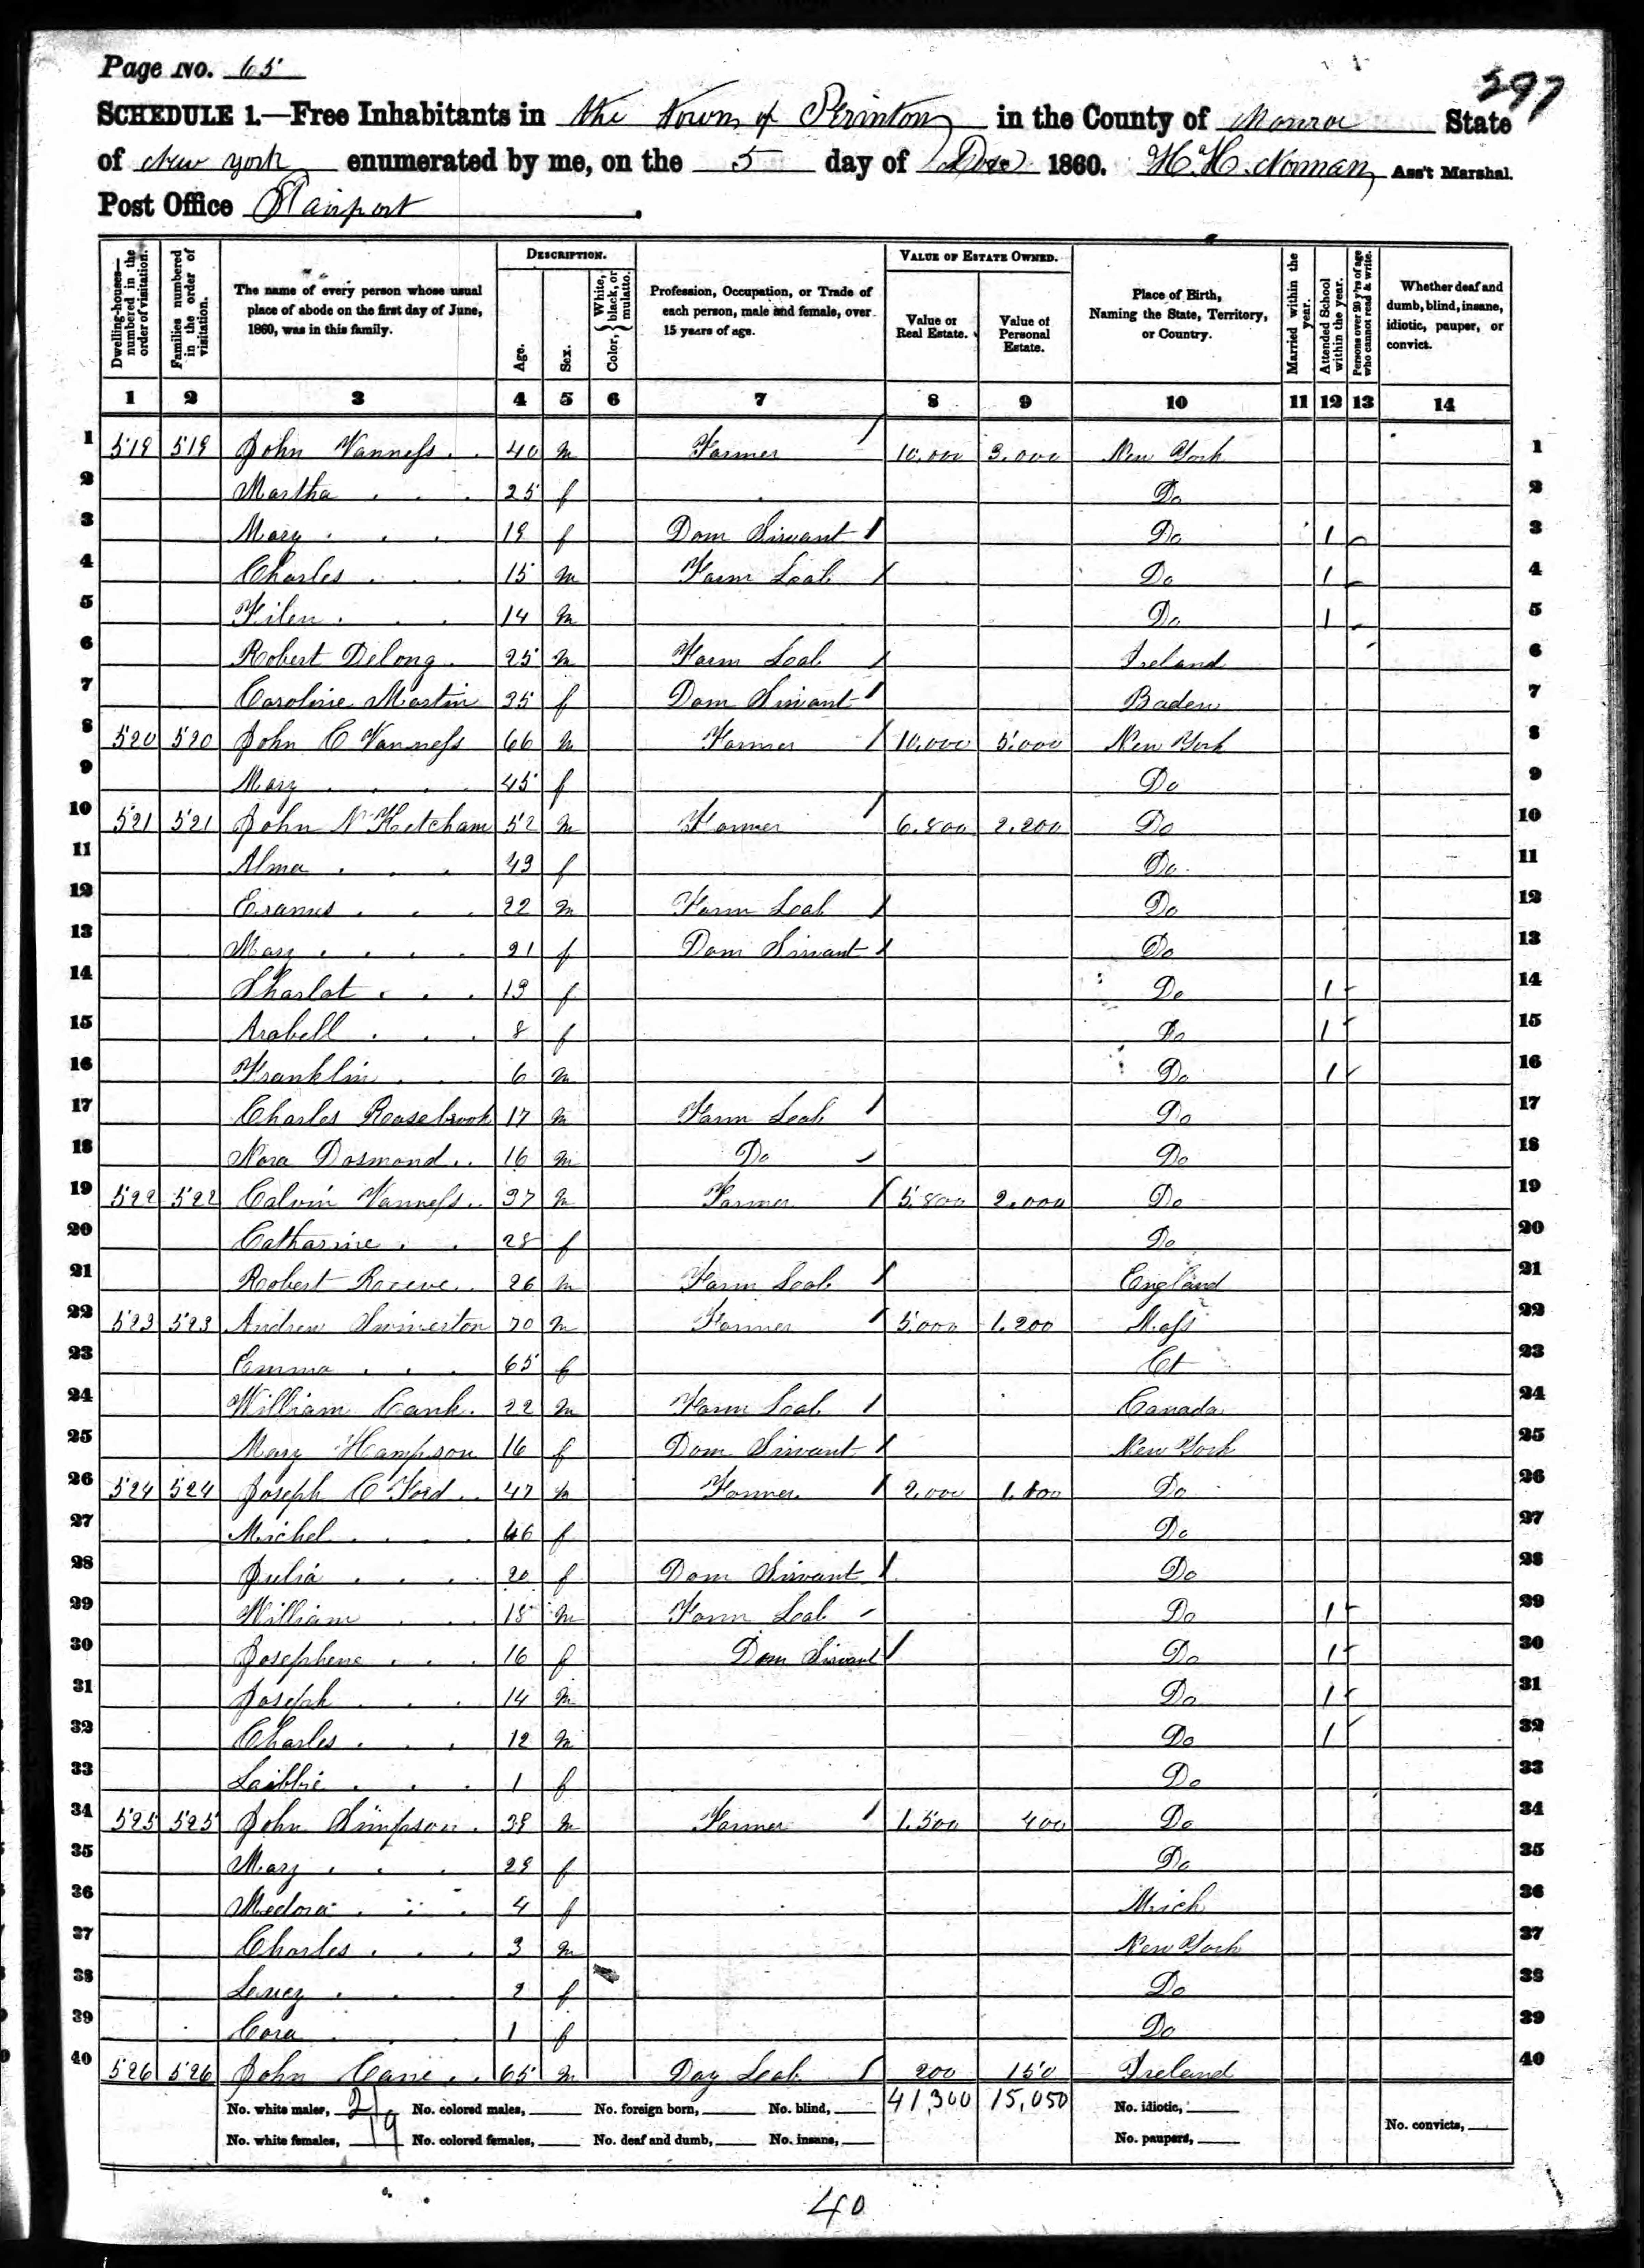 Page No. 65
297
SCHEDULE 1.—Free Inhabitants in the Town of Perinton in the County of Monroe State
of New York enumerated by me, on the 5 day of 1860. H. H. Norman, Ass't Marshal.
Post Office Fairport.
Dwelling-houses—numbered in the order of visitation.
Families numbered in the order of visitation.
The name of every person whose usual place of abode on the first day of June, 1860, was in this family.
DESCRIPTION.
Age.
Sex.
Color, { White, black, or mulatto.
Profession, Occupation, or Trade of each person, male and female, over 15 years of age.
VALUE OF ESTATE OWNED.
Value of Real Estate.
Value of Personal Estate.
Place of Birth, Naming the State, Territory, or Country.
Married within the year.
Attended School within the year.
Persons over 20 y'rs of age who cannot read & write.
Whether deaf and dumb, blind, insane, idiotic, pauper, or convict.
1 2 3 4 5 6 7 8 9 10 11 12 13 14
1 519 519 John Vanness 40 m Farmer / 10,000 3,000 New York 1
2 Martha 25 f Do 2
3 Mary 19 f Dom Sirvant / Do 1 3
4 Charles 15 m Farm Loab / Do 1 4
5 14 m Do 1 5
6 Robert Delong 25 m Farm Loab / Ireland 6
7 Caroline Martin 25 f Dom Sirvant / Baden 7
8 520 520 John C Vanness 66 m Farmer / 10,000 5,000 New York 8
9 Mary 45 f Do 9
10 521 521 John N Ketcham 52 m Farmer / 6,800 2,200 Do 10
11 Alma 49 f Do 11
12 22 m Farm Loab / Do 12
13 Mary 21 f Dom Sirvant / Do 13
14 Sharlot 13 f Do 1 14
15 Arabell 8 f Do 1 15
16 Franklin 6 m Do 1 16
17 Charles Rosebrook 17 m Farm Loab / Do 17
18 Nora Dosmond 16 m Do Do 18
19 522 522 Calvin Vanness 37 m Farmer / 5,800 2,000 Do 19
20 Catharine 28 f Do 20
21 Robert Reeve 26 m Farm Loab / England 21
22 523 523 Andrew 70 m Farmer / 5,000 1,200 Mass 22
23 Emma 65 f Ct 23
24 William 22 m Farm Loab / Canada 24
25 Mary Hampson 16 f Dom Sirvant / New York 25
26 524 524 Joseph C Ford 47 m Farmer / 2,000 Do 26
27 Michel 46 f Do 27
28 Julia 20 f Dom Sirvant / Do 28
29 William 18 m Farm Loab Do 1 29
30 Josephene 16 f Dom Sirvant / Do 1 30
31 Joseph 14 m Do 1 31
32 Charles 12 m Do 1 32
33 Laibbie 1 f Do 33
34 525 525 John Simpson 39 m Farmer / 1,500 400 Do 34
35 Mary 29 f Do 35
36 Medora 4 f Mich 36
37 Charles 3 m New York 37
38 2 f Do 38
39 Cora 1 f Do 39
40 526 526 John Cane 65 m Day Loab / 200 150 Ireland 40
No. white males, 21 No. colored males, No. foreign born, No. blind, 41,300 15,050 No. idiotic,
No. white females, 19 No. colored females, No. deaf and dumb, No. insane, No. paupers, No. convicts,
40